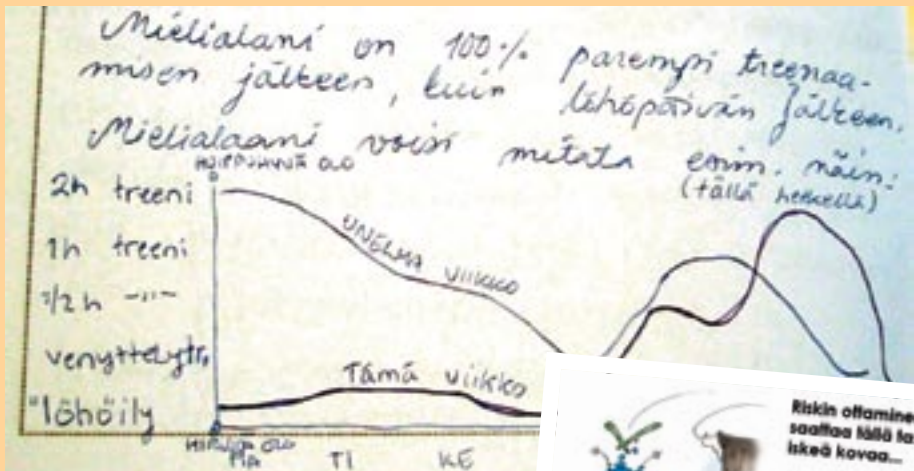 Mielialani on 100% parempi treenaa-
misen jälkeen, kuin löhöpäivän jälkeen.
Mielialaani voisi mitata esim. näin:
(tällä hetkellä)
HUIPPUHYVÄ OLO
2h treeni
1h treeni
1/2 h -"-
venyttelytr.
"löhöily
UNELMA VIIKKO
Tämä viikko
OLO
MA TI KE
Riskin ottamine
saattaa tällä ta
iskeä kovaa...